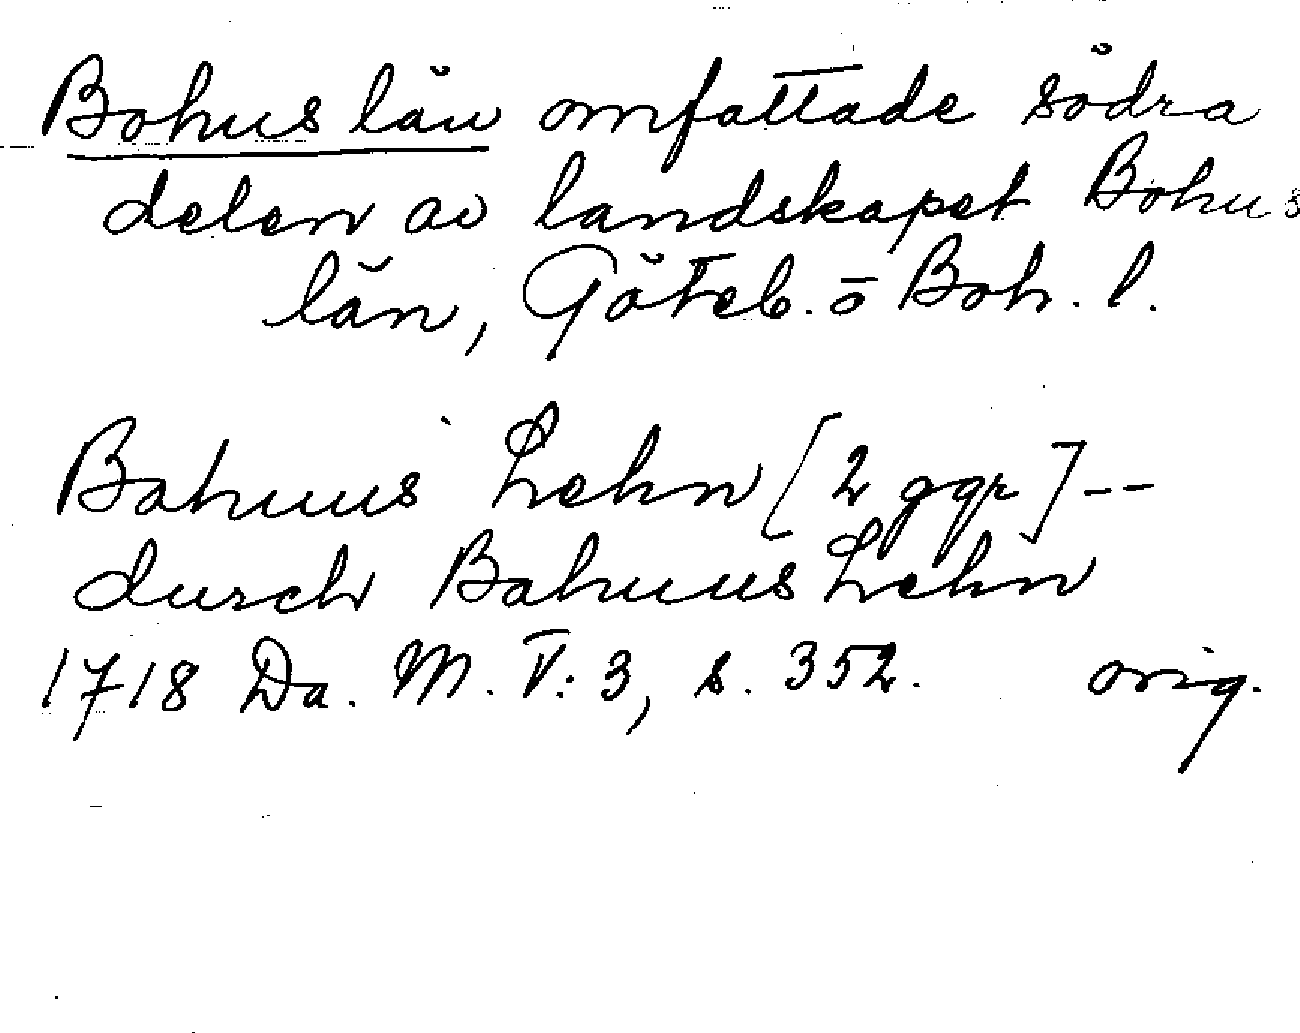 Bohus län omfattade södra
delen av landskapet Bohus
län, Göteb. o Boh. l.
Bahuus Lehn [2 ggr] --
durch Bahuus Lehn
1718 Da. M. V: 3, s. 352. orig.